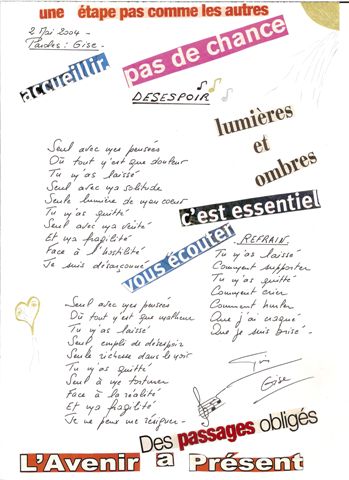 une étape pas comme les autres
2 Mai 2004 -
Paroles : Gise -
accueillir
pas de chance
DESESPOIR
lumières
et
ombres
Seul avec mes pensées
Où tout n'est que douleur
Tu m'as laissé
Seul avec ma solitude
Seule lumière de mon coeur
Tu m'as quitté
Seul avec ma vérité
Et ma fragilité
Face à l'hostilité
Je suis désarçonné
c'est essentiel
vous écouter
REFRAIN
Tu m'as laissé
Comment supporter
Tu m'as quitté
Comment crier
Comment hurler
Que j'ai craqué
Que je suis brisé -
Seul avec mes pensées
Où tout n'est que malheur
Tu m'as laissé
Seul empli de désespoir
Seule richesse dans le noir
Tu m'as quitté
Seul à me torturer
Face à la réalité
Et ma fragilité
Je ne peux me résigner -
Gise
Des passages obligés
L'Avenir a Présent